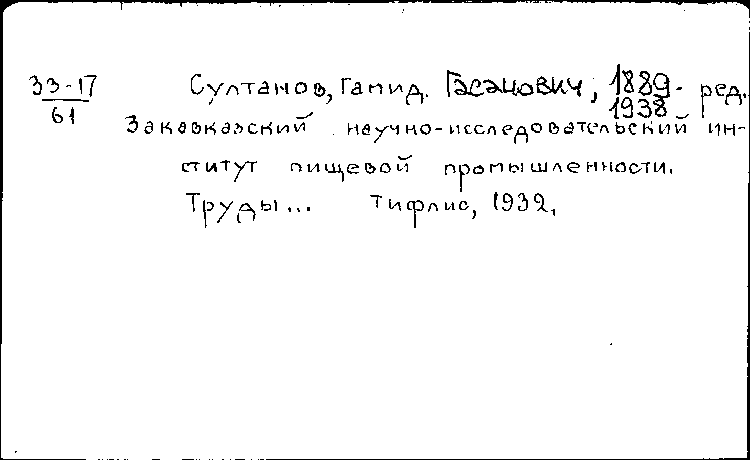 33-17
61
Султанов, Гамид. Гасанович, 1889-1938 ред.
Закавказский научно-исследовательский ин-
ститут пищевой промышленности.
Труды... Тифлис, 1932.